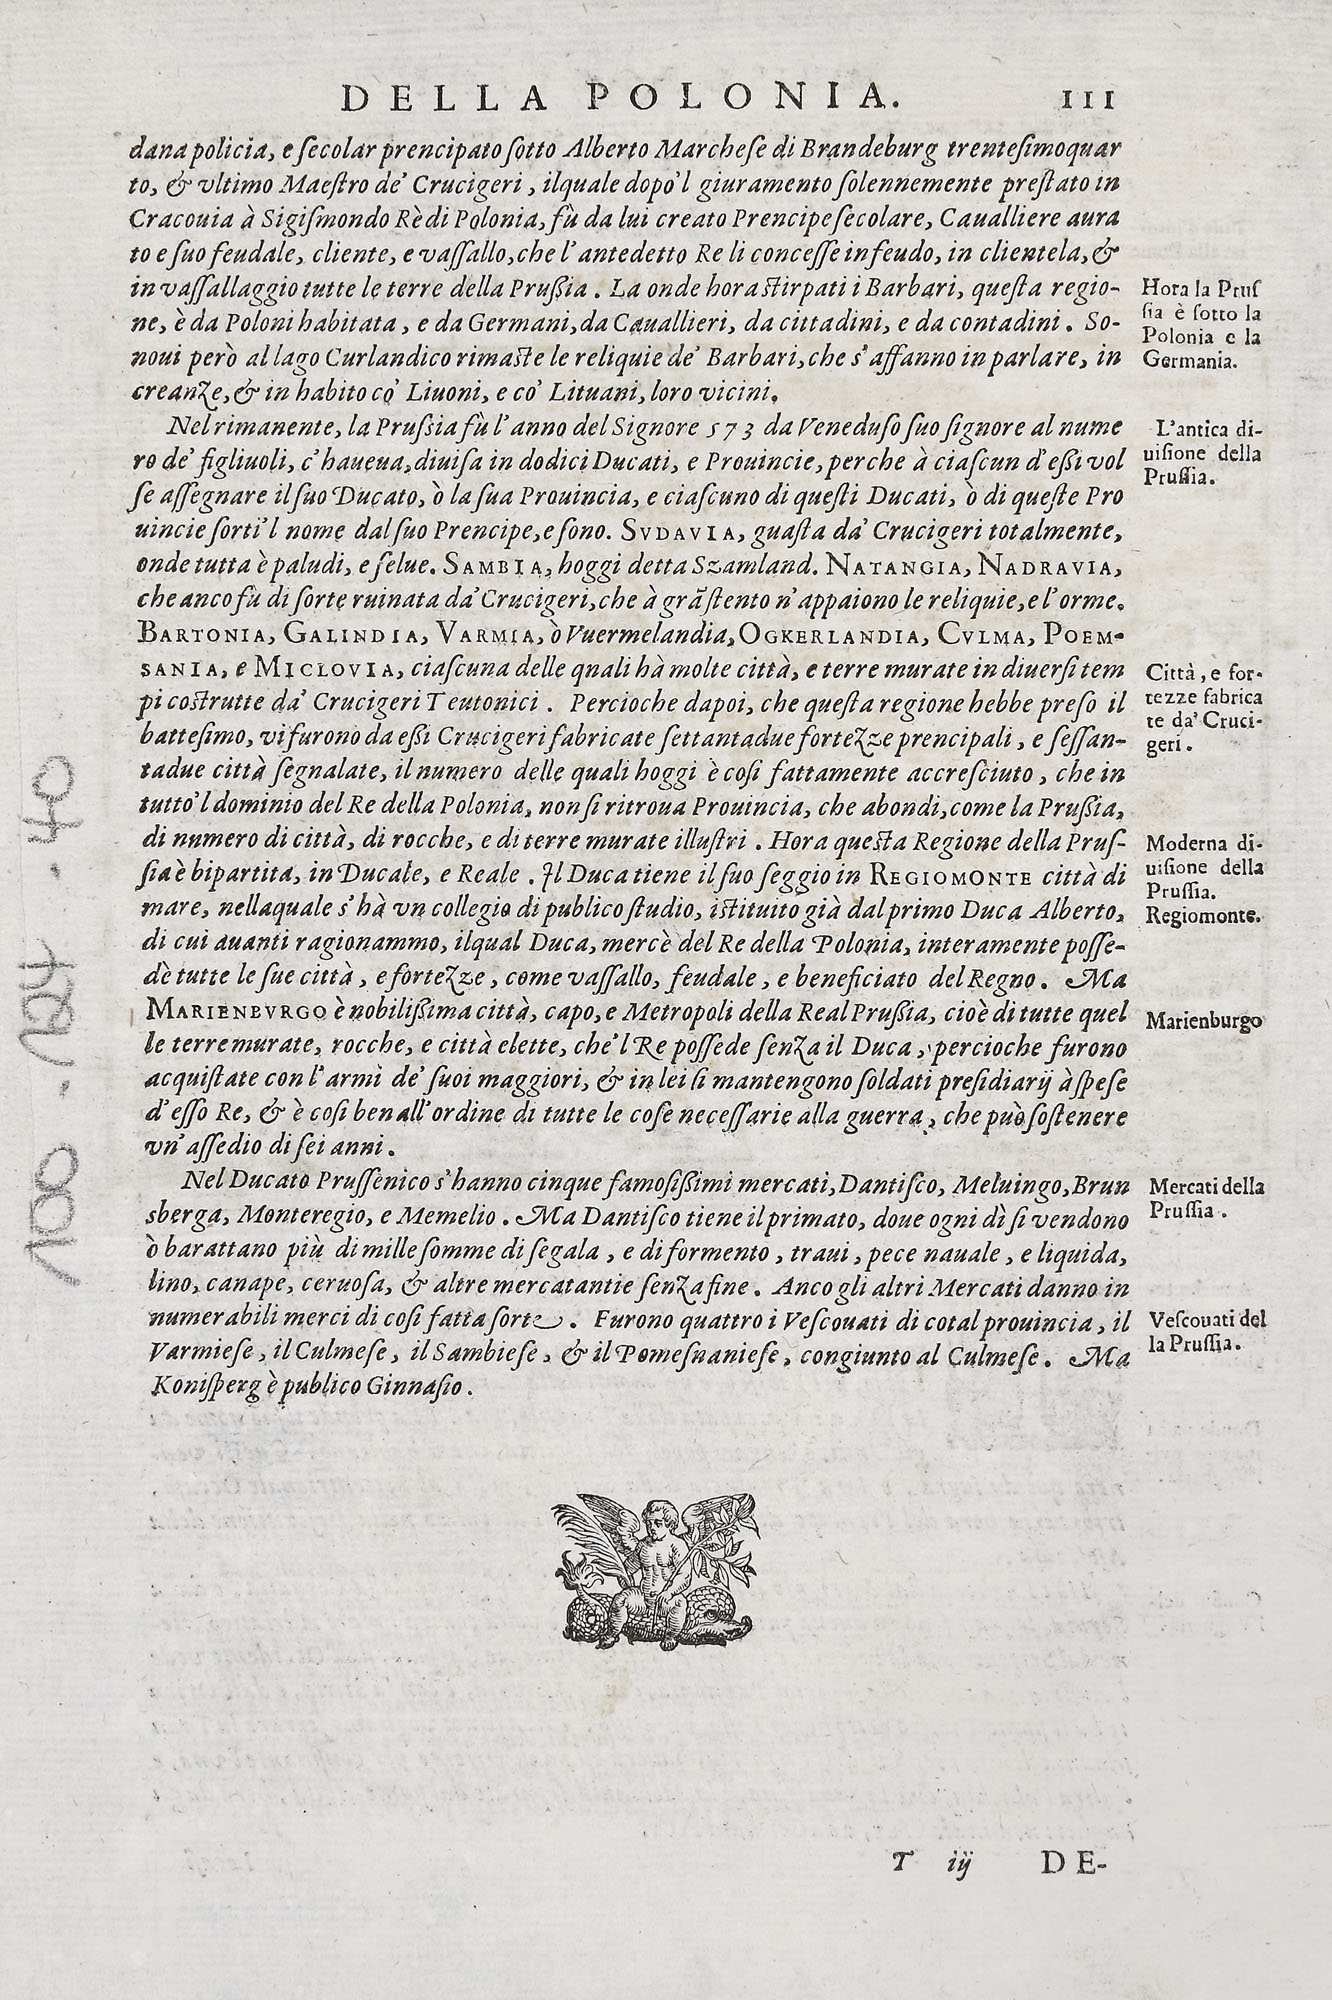 DELLA POLONIA. 111
dana policia, e ſecolar prencipato ſotto Alberto Marcheſe di Brandeburg trenteſimoquar
to, & vltimo Maeſtro de' Crucigeri, ilquale dopo'l giuramento ſolennemente preſtato in
Cracouia à Sigiſmondo Rè di Polonia, fù da lui creato Prencipe ſecolare, Caualliere aura
to e ſuo feudale, cliente, e vaſſallo, che l'antedetto Re li conceſſe in feudo, in clientela, &
in vaſſallaggio tutte le terre della Pruſsia. La onde hora ſtirpati i Barbari, queſta regio-
ne, è da Poloni habitata, e da Germani, da Cauallieri, da cittadini, e da contadini. So-
noui però al lago Curlandico rimaſte le reliquie de' Barbari, che s'affanno in parlare, in
creanze, & in habito co' Liuoni, e co' Lituani, loro vicini.
Hora la Pruſ
ſia è ſotto la
Polonia e la
Germania.
Nel rimanente, la Pruſsia fù l'anno del Signore 573 da Veneduſo ſuo ſignore al nume
ro de' figliuoli, c'haueua, diuiſa in dodici Ducati, e Prouincie, perche à ciaſcun d'eſsi vol
ſe aſſegnare il ſuo Ducato, ò la ſua Prouincia, e ciaſcuno di queſti Ducati, ò di queſte Pro
uincie ſorti'l nome dal ſuo Prencipe, e ſono. SVDAVIA, guaſta da' Crucigeri totalmente,
onde tutta è paludi, e ſelue. SAMBIA, hoggi detta Szamland. NATANGIA, NADRAVIA,
che anco fù di ſorte ruinata da' Crucigeri, che à grã ſtento n'appaiono le reliquie, e l'orme.
BARTONIA, GALINDIA, VARMIA, ò Vuermelandia, OGKERLANDIA, CVLMA, POEM-
SANIA, e MICLOVIA, ciaſcuna delle quali hà molte città, e terre murate in diuerſi tem
pi coſtrutte da' Crucigeri Teutonici. Percioche dapoi, che queſta regione hebbe preſo il
batteſimo, vi furono da eſsi Crucigeri fabricate ſettantadue fortezze prencipali, e ſeſſan-
tadue città ſegnalate, il numero delle quali hoggi è coſi fattamente accreſciuto, che in
tutto'l dominio del Re della Polonia, non ſi ritroua Prouincia, che abondi, come la Pruſsia,
di numero di città, di rocche, e di terre murate illuſtri. Hora queſta Regione della Pruſ-
ſia è bipartita, in Ducale, e Reale. Il Duca tiene il ſuo ſeggio in REGIOMONTE città di
mare, nellaquale s'hà vn collegio di publico ſtudio, iſtituito già dal primo Duca Alberto,
di cui auanti ragionammo, ilqual Duca, mercè del Re della Polonia, interamente poſſe-
dè tutte le ſue città, e fortezze, come vaſſallo, feudale, e beneficiato del Regno. Ma
MARIENBVRGO è nobiliſsima città, capo, e Metropoli della Real Pruſsia, cioè di tutte quel
le terre murate, rocche, e città elette, che'l Re poſſede ſenza il Duca, percioche furono
acquiſtate con l'armi de' ſuoi maggiori, & in lei ſi mantengono ſoldati preſidiarij à ſpeſe
d'eſſo Re, & è coſi ben all'ordine di tutte le coſe neceſſarie alla guerra, che può ſoſtenere
vn'aſſedio di ſei anni.
L'antica di-
uiſione della
Pruſſia.
Città, e for-
tezze fabrica
te da' Cruci-
geri.
Moderna di-
uiſione della
Pruſſia.
Regiomonte.
Marienburgo
Nel Ducato Pruſſenico s'hanno cinque famoſiſsimi mercati, Dantiſco, Meluingo, Brun
sberga, Monteregio, e Memelio. Ma Dantiſco tiene il primato, doue ogni dì ſi vendono
ò barattano più di mille ſomme di ſegala, e di formento, traui, pece nauale, e liquida,
lino, canape, ceruoſa, & altre mercatantie ſenza fine. Anco gli altri Mercati danno in
numerabili merci di coſi fatta ſorte. Furono quattro i Veſcouati di cotal prouincia, il
Varmieſe, il Culmeſe, il Sambieſe, & il Pomeſnanieſe, congiunto al Culmeſe. Ma
Koniſperg è publico Ginnaſio.
Mercati della
Pruſſia.
Veſcouati del
la Pruſſia.
T iij DE-